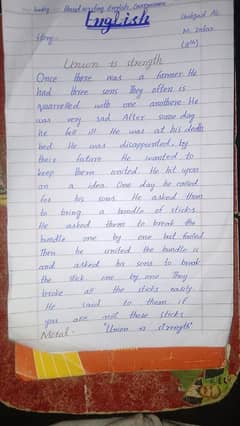 Hand writing English Competition
English
M. Zafar
Story (8th)
Union is strength
Once there was a farmer. He
had three sons they often is
quarrelled with one another. He
was very sad. After some day
he fell ill. He was at his death
bed. He was disappointed, by
their future. He wanted to
keep them united. He hit upon
on a idea. One day he called
for his sons. He asked them
to bring a bundle of sticks
He asked them to break the
bundle one by one but failed
Then he united the bundle is
and asked his sons to break
the stick one by one They
broke all the sticks easily
He said to them if
you are not these sticks
Moral- "Union is strength"